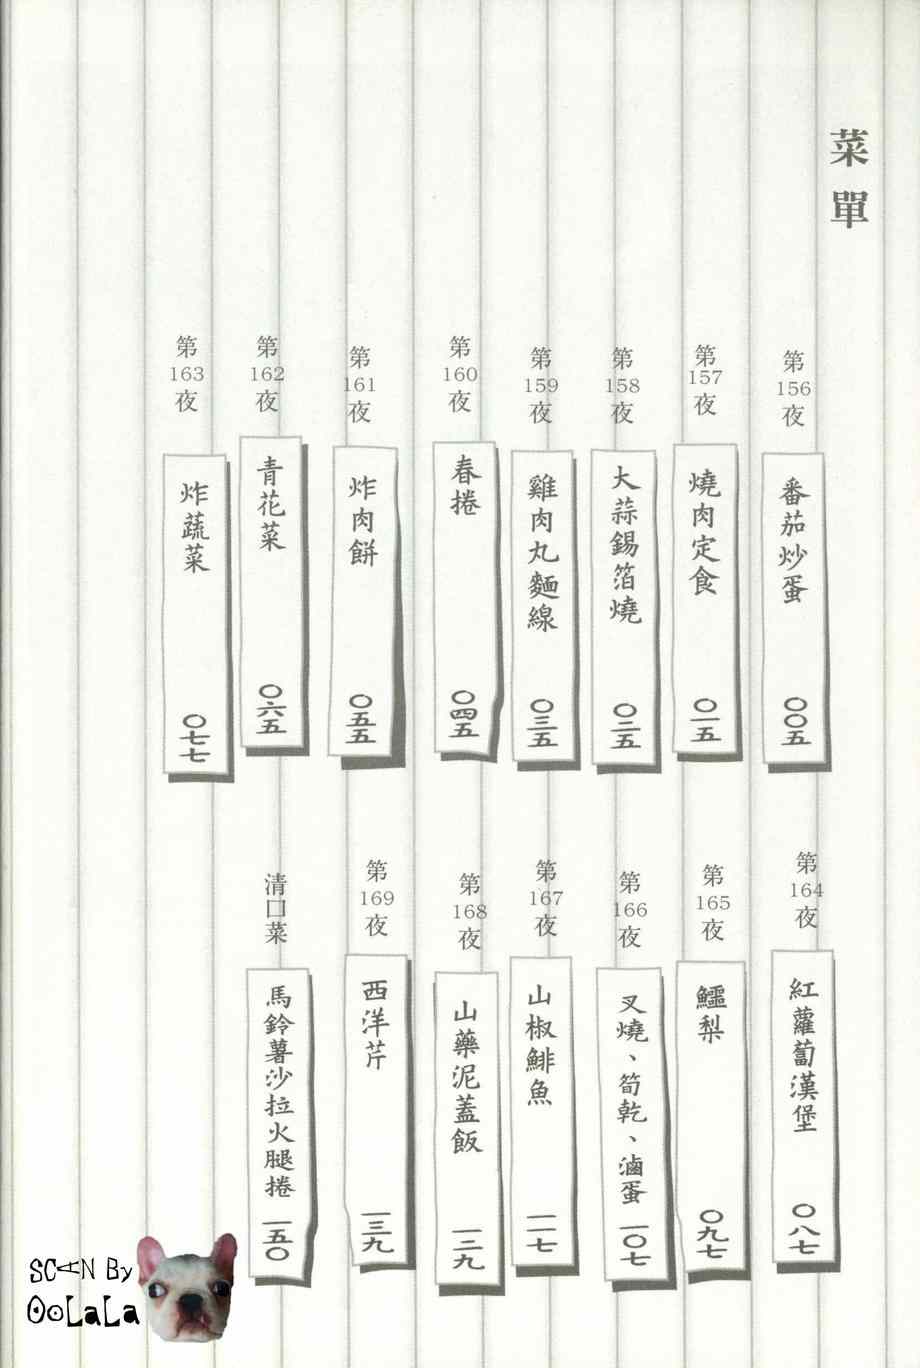 菜單
第156夜
番茄炒蛋
〇〇五
第157夜
燒肉定食
〇一五
第158夜
大蒜錫箔燒
〇二五
第159夜
雞肉丸麵線
〇三五
第160夜
春捲
〇四五
第161夜
炸肉餅
〇五五
第162夜
青花菜
〇六五
第163夜
炸蔬菜
〇七七
第164夜
紅蘿蔔漢堡
〇八七
第165夜
鱷梨
〇九七
第166夜
叉燒、筍乾、滷蛋
一〇七
第167夜
山椒鯡魚
一一七
第168夜
山藥泥蓋飯
一二九
第169夜
西洋芹
一三九
清口菜
馬鈴薯沙拉火腿捲
一五〇
SCAN By
OoLaLa